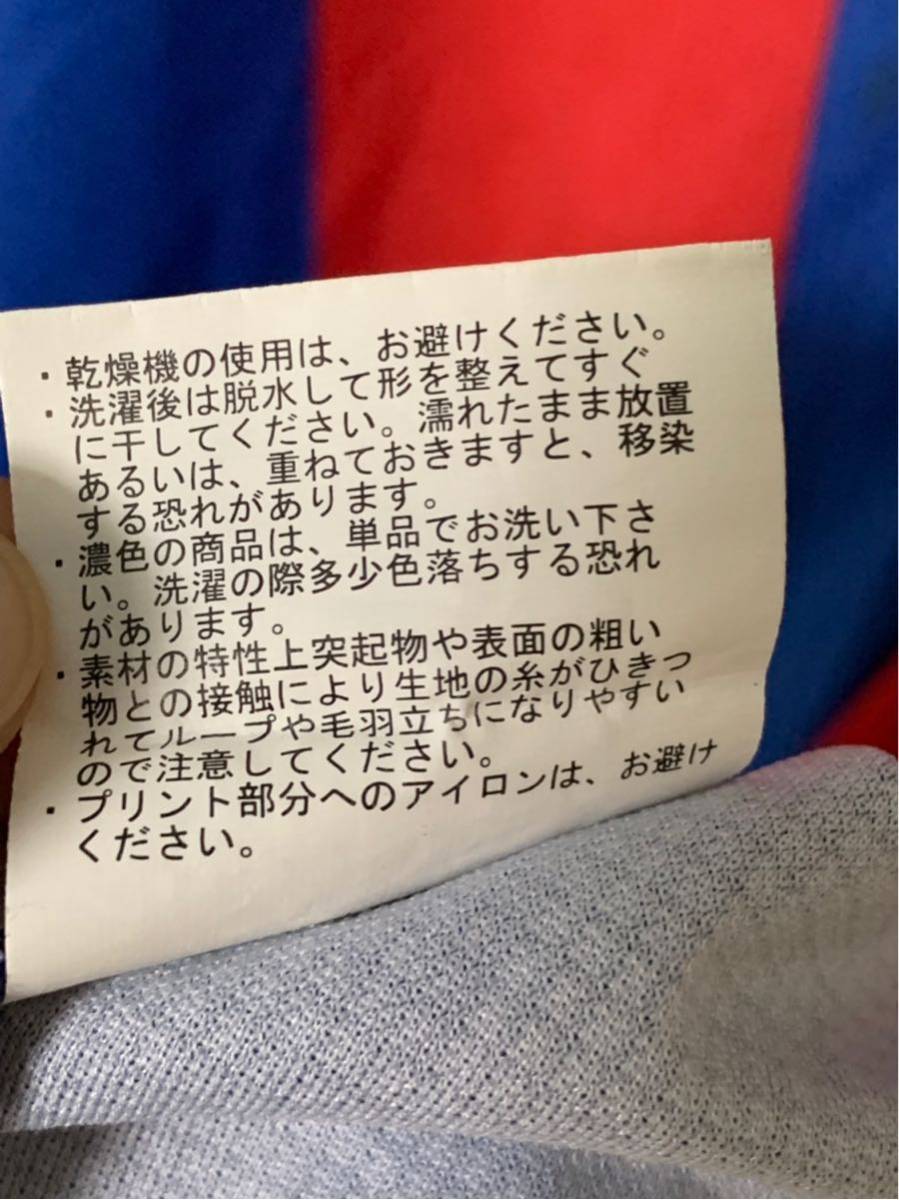 ・乾燥機の使用は、お避けください。
・洗濯後は脱水して形を整えてすぐ
に干してください。濡れたまま放置
あるいは、重ねておきますと、移染
する恐れがあります。
・濃色の商品は、単品でお洗い下さ
い。洗濯の際多少色落ちする恐れ
があります。
・素材の特性上突起物や表面の粗い
物との接触により生地の糸がひきつ
れてループや毛羽立ちになりやすい
ので注意してください。
・プリント部分へのアイロンは、お避け
ください。